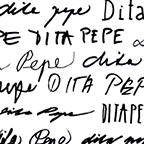 dita pepe Dita
PE DITA PEPE
Pepe dita
pepe DITA PEP
dita Pepe DITAPE
dita Pepe dita